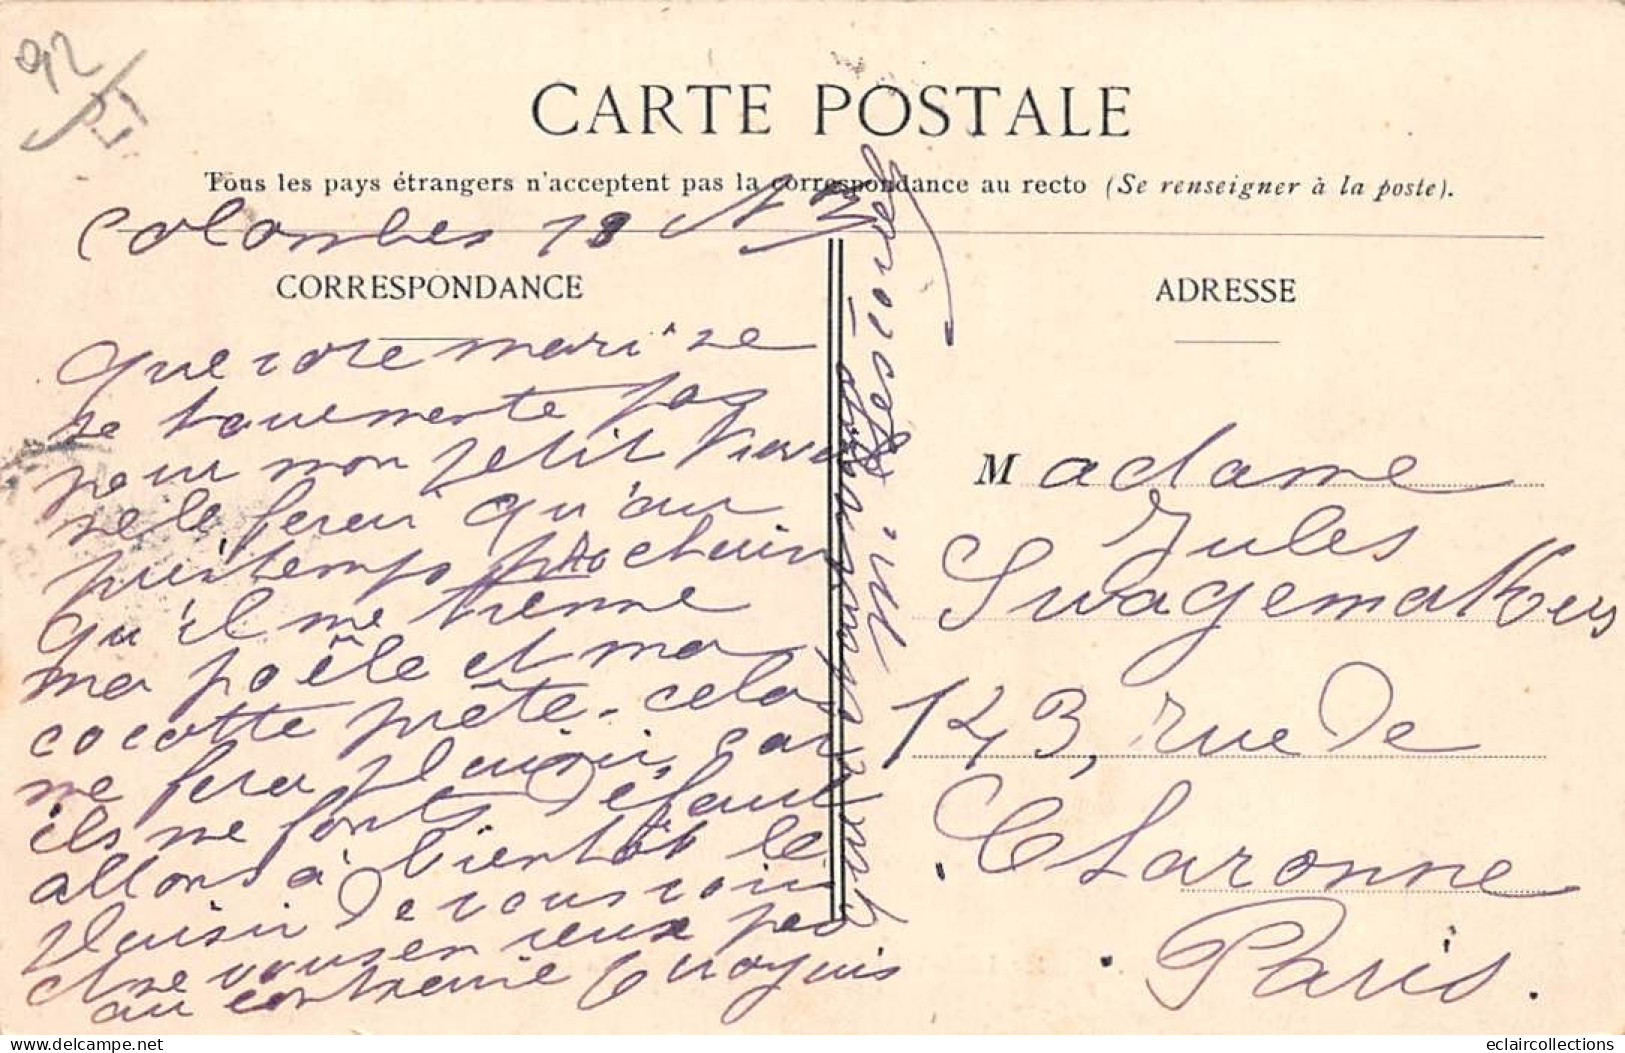 92
CARTE POSTALE
Tous les pays étrangers n'acceptent pas la correspondance au recto (Se renseigner à la poste).
Colombes 18
CORRESPONDANCE
ADRESSE
Que votre mari ne
se tourmente pas
pour mon petit
ne le ferai qu'au
printemps prochain
qu'il me tienne
ma poêle et ma
cocotte prête. cela
me fera plaisir, car
ils me font défaut
allons à bientôt le
plaisir de vous voir
et ne vous en veux pas
au contraire
Madame
Jules
Swagemakers
143, rue de
Charonne
Paris.
eclaircollections